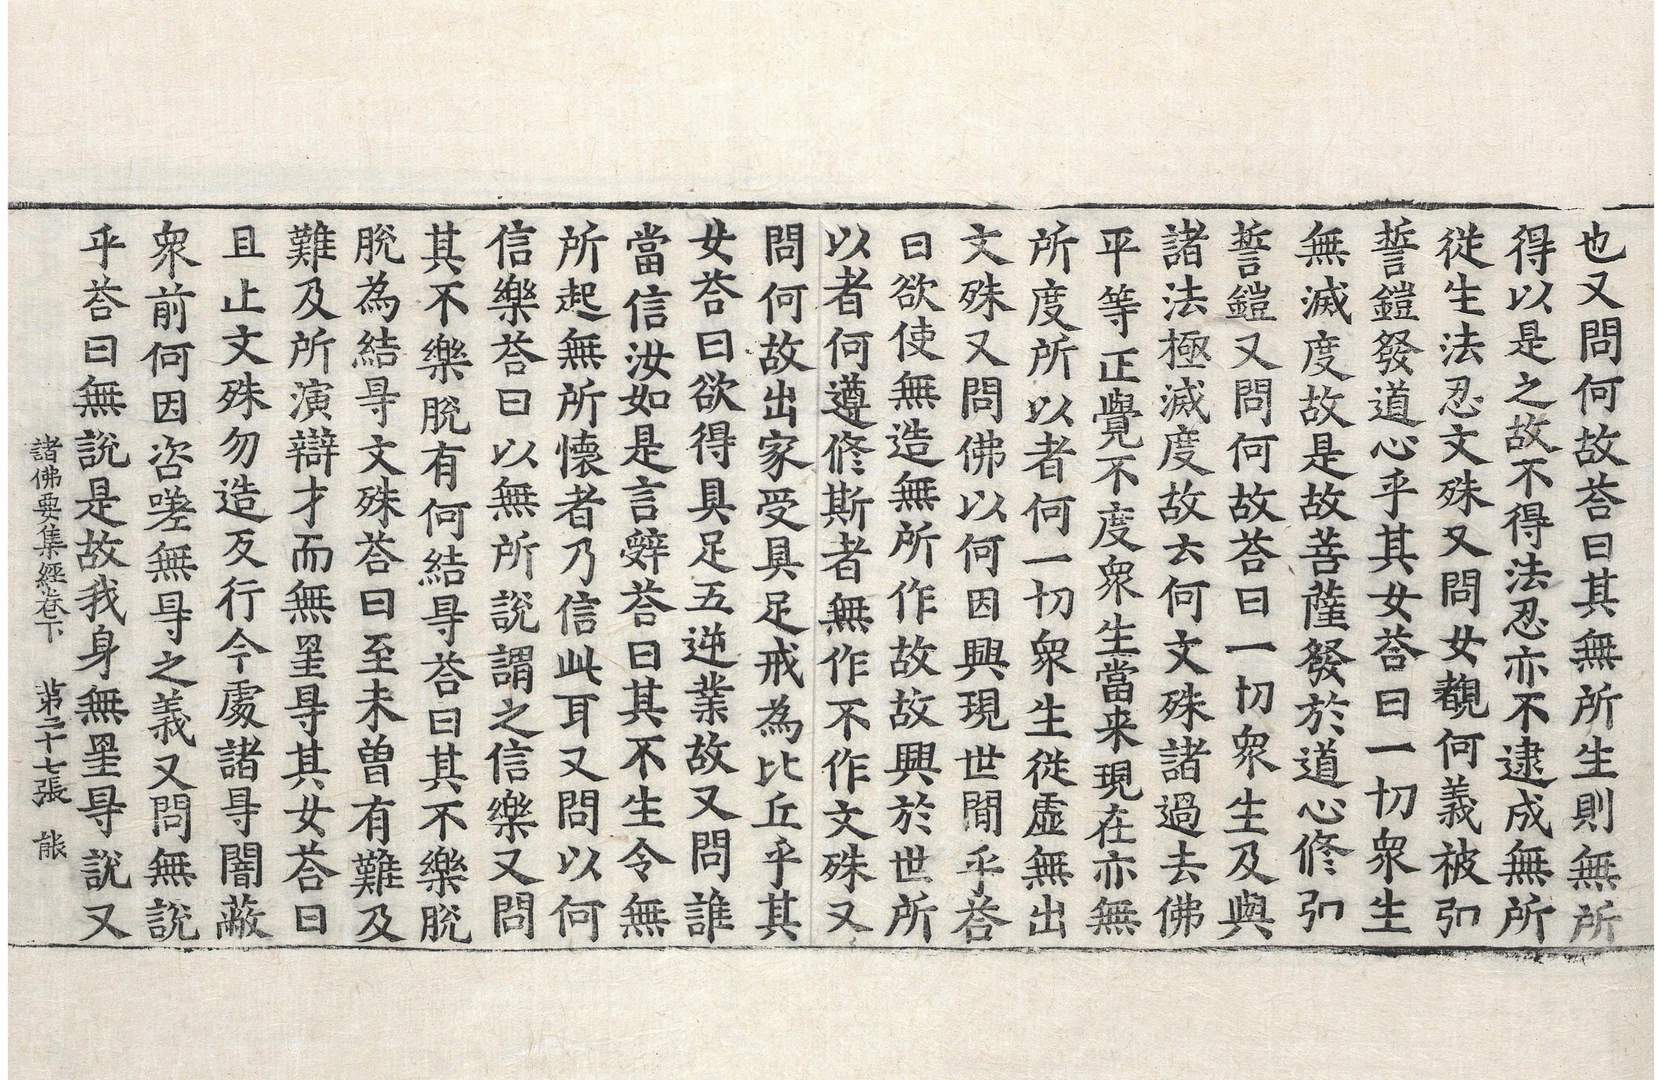 也又問何故荅曰其無所生則無所
得以是之故不得法忍亦不逮成無所
從生法忍文殊又問女覩何義被弘
誓鎧發道心乎其女荅曰一切衆生
無滅度故是故菩薩發於道心修弘
誓鎧又問何故荅曰一切衆生及與
諸法極滅度故去何文殊諸過去佛
平等正覺不度衆生當来現在亦無
所度所以者何一切衆生從虛無出
文殊又問佛以何因興現世間乎荅
曰欲使無造無所作故故興於世所
以者何遵修斯者無作不作文殊又
問何故出家受具足戒為比丘乎其
女荅曰欲得具足五逆業故又問誰
當信汝如是言辭荅曰其不生令無
所起無所懷者乃信此耳又問以何
信樂荅曰以無所說謂之信樂又問
其不樂脫有何結㝵荅曰其不樂脫
脫為結㝵文殊荅曰至未曽有難及
難及所演辯才而無罣㝵其女荅曰
且止文殊勿造反行今處諸㝵闇蔽
衆前何因咨嗟無㝵之義又問無說
乎荅曰無說是故我身無罣㝵說又
諸佛要集經卷下　第二十七張　能